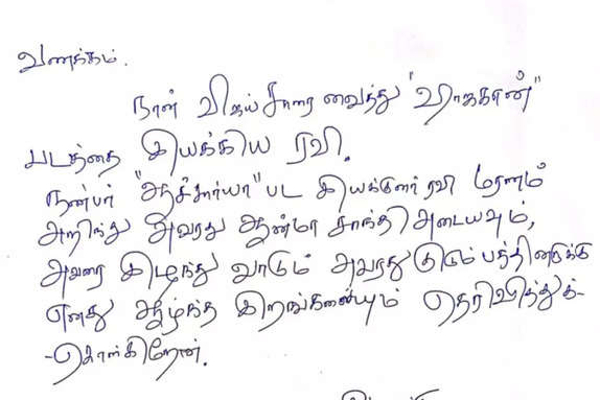 வணக்கம்.
நான் விஜய் சாரை வைத்து "யாககான்"
படத்தை இயக்கிய ரவி.
நண்பர் "ஆச்சார்யா" பட இயக்குனர் ரவி மரணம்
அறிந்து அவரது ஆன்மா சாந்தி அடையவும்,
அவரை இழந்து வாடும் அவரது குடும்பத்தினருக்கு
எனது ஆழ்ந்த இரங்கலையும் தெரிவித்துக்-
-கொள்கிறேன்.